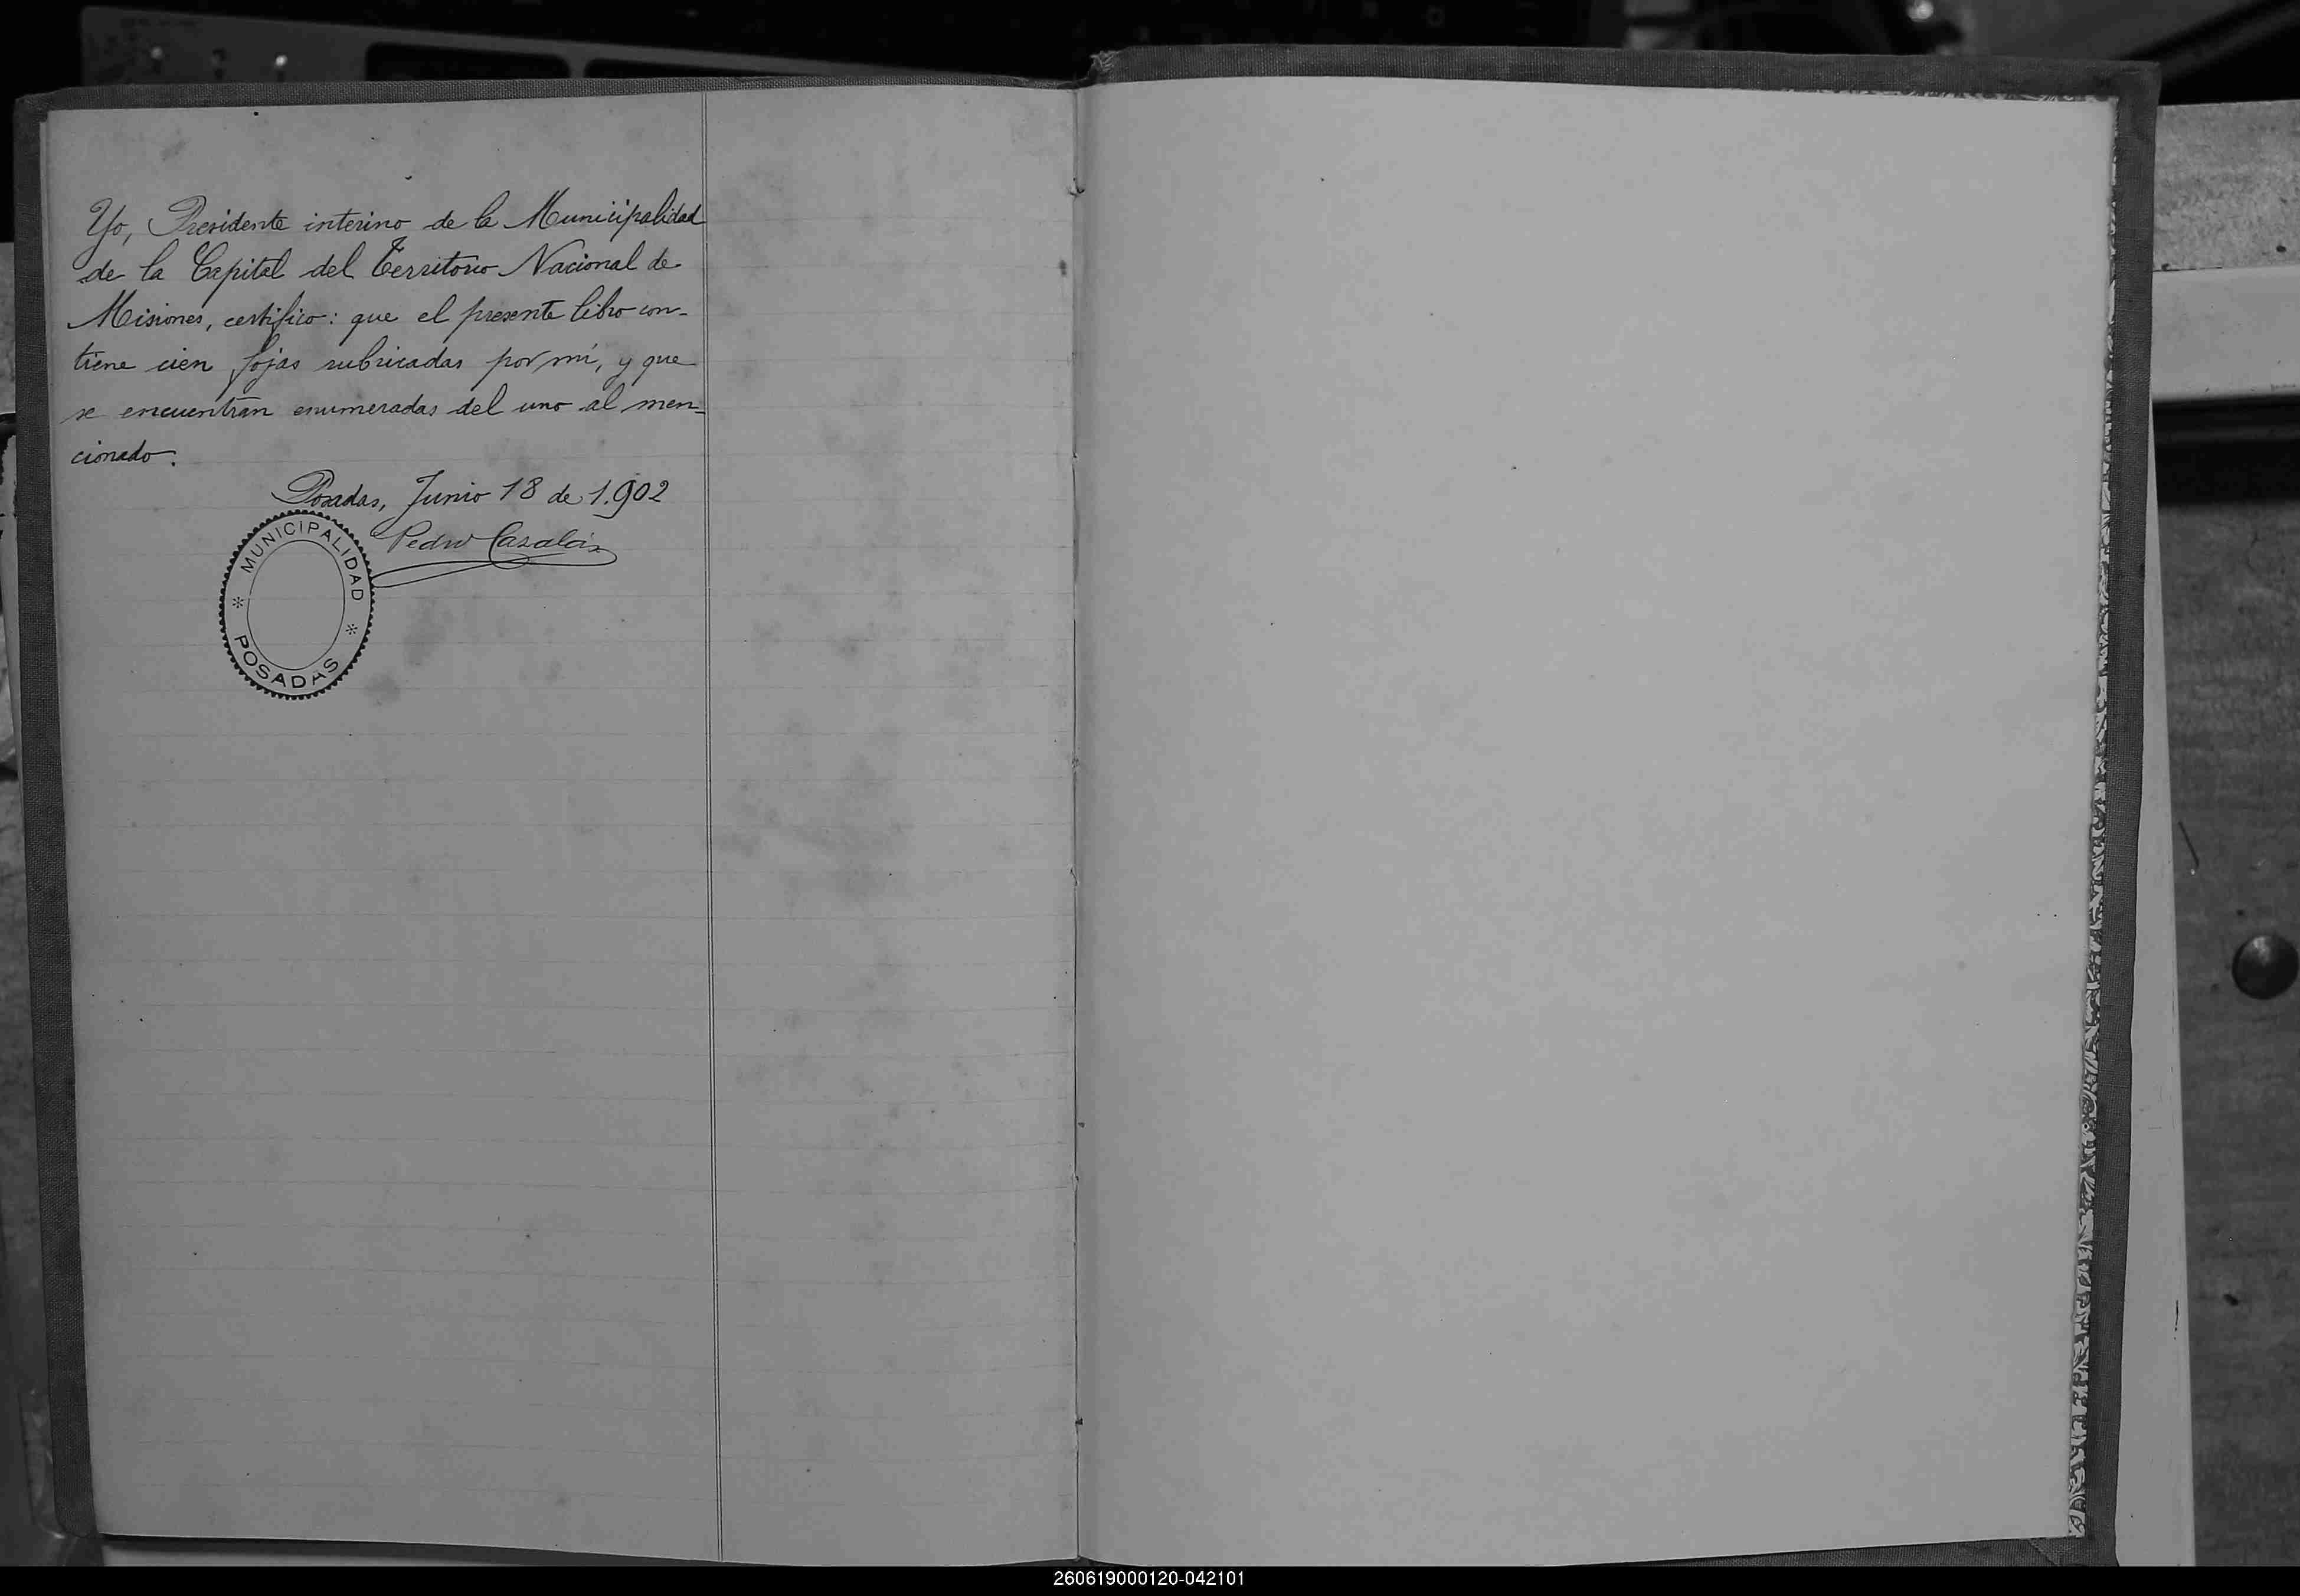 Yo, Presidente interino de la Municipalidad
de la Capital del Territorio Nacional de
Misiones, certifico: que el presente libro con-
tiene cien fojas rubricadas por mí, y que
se encuentran enumeradas del uno al men-
cionado.
Posadas, Junio 18 de 1.902
Pedro Cazalás
MUNICIPALIDAD
POSADAS
260619000120-042101